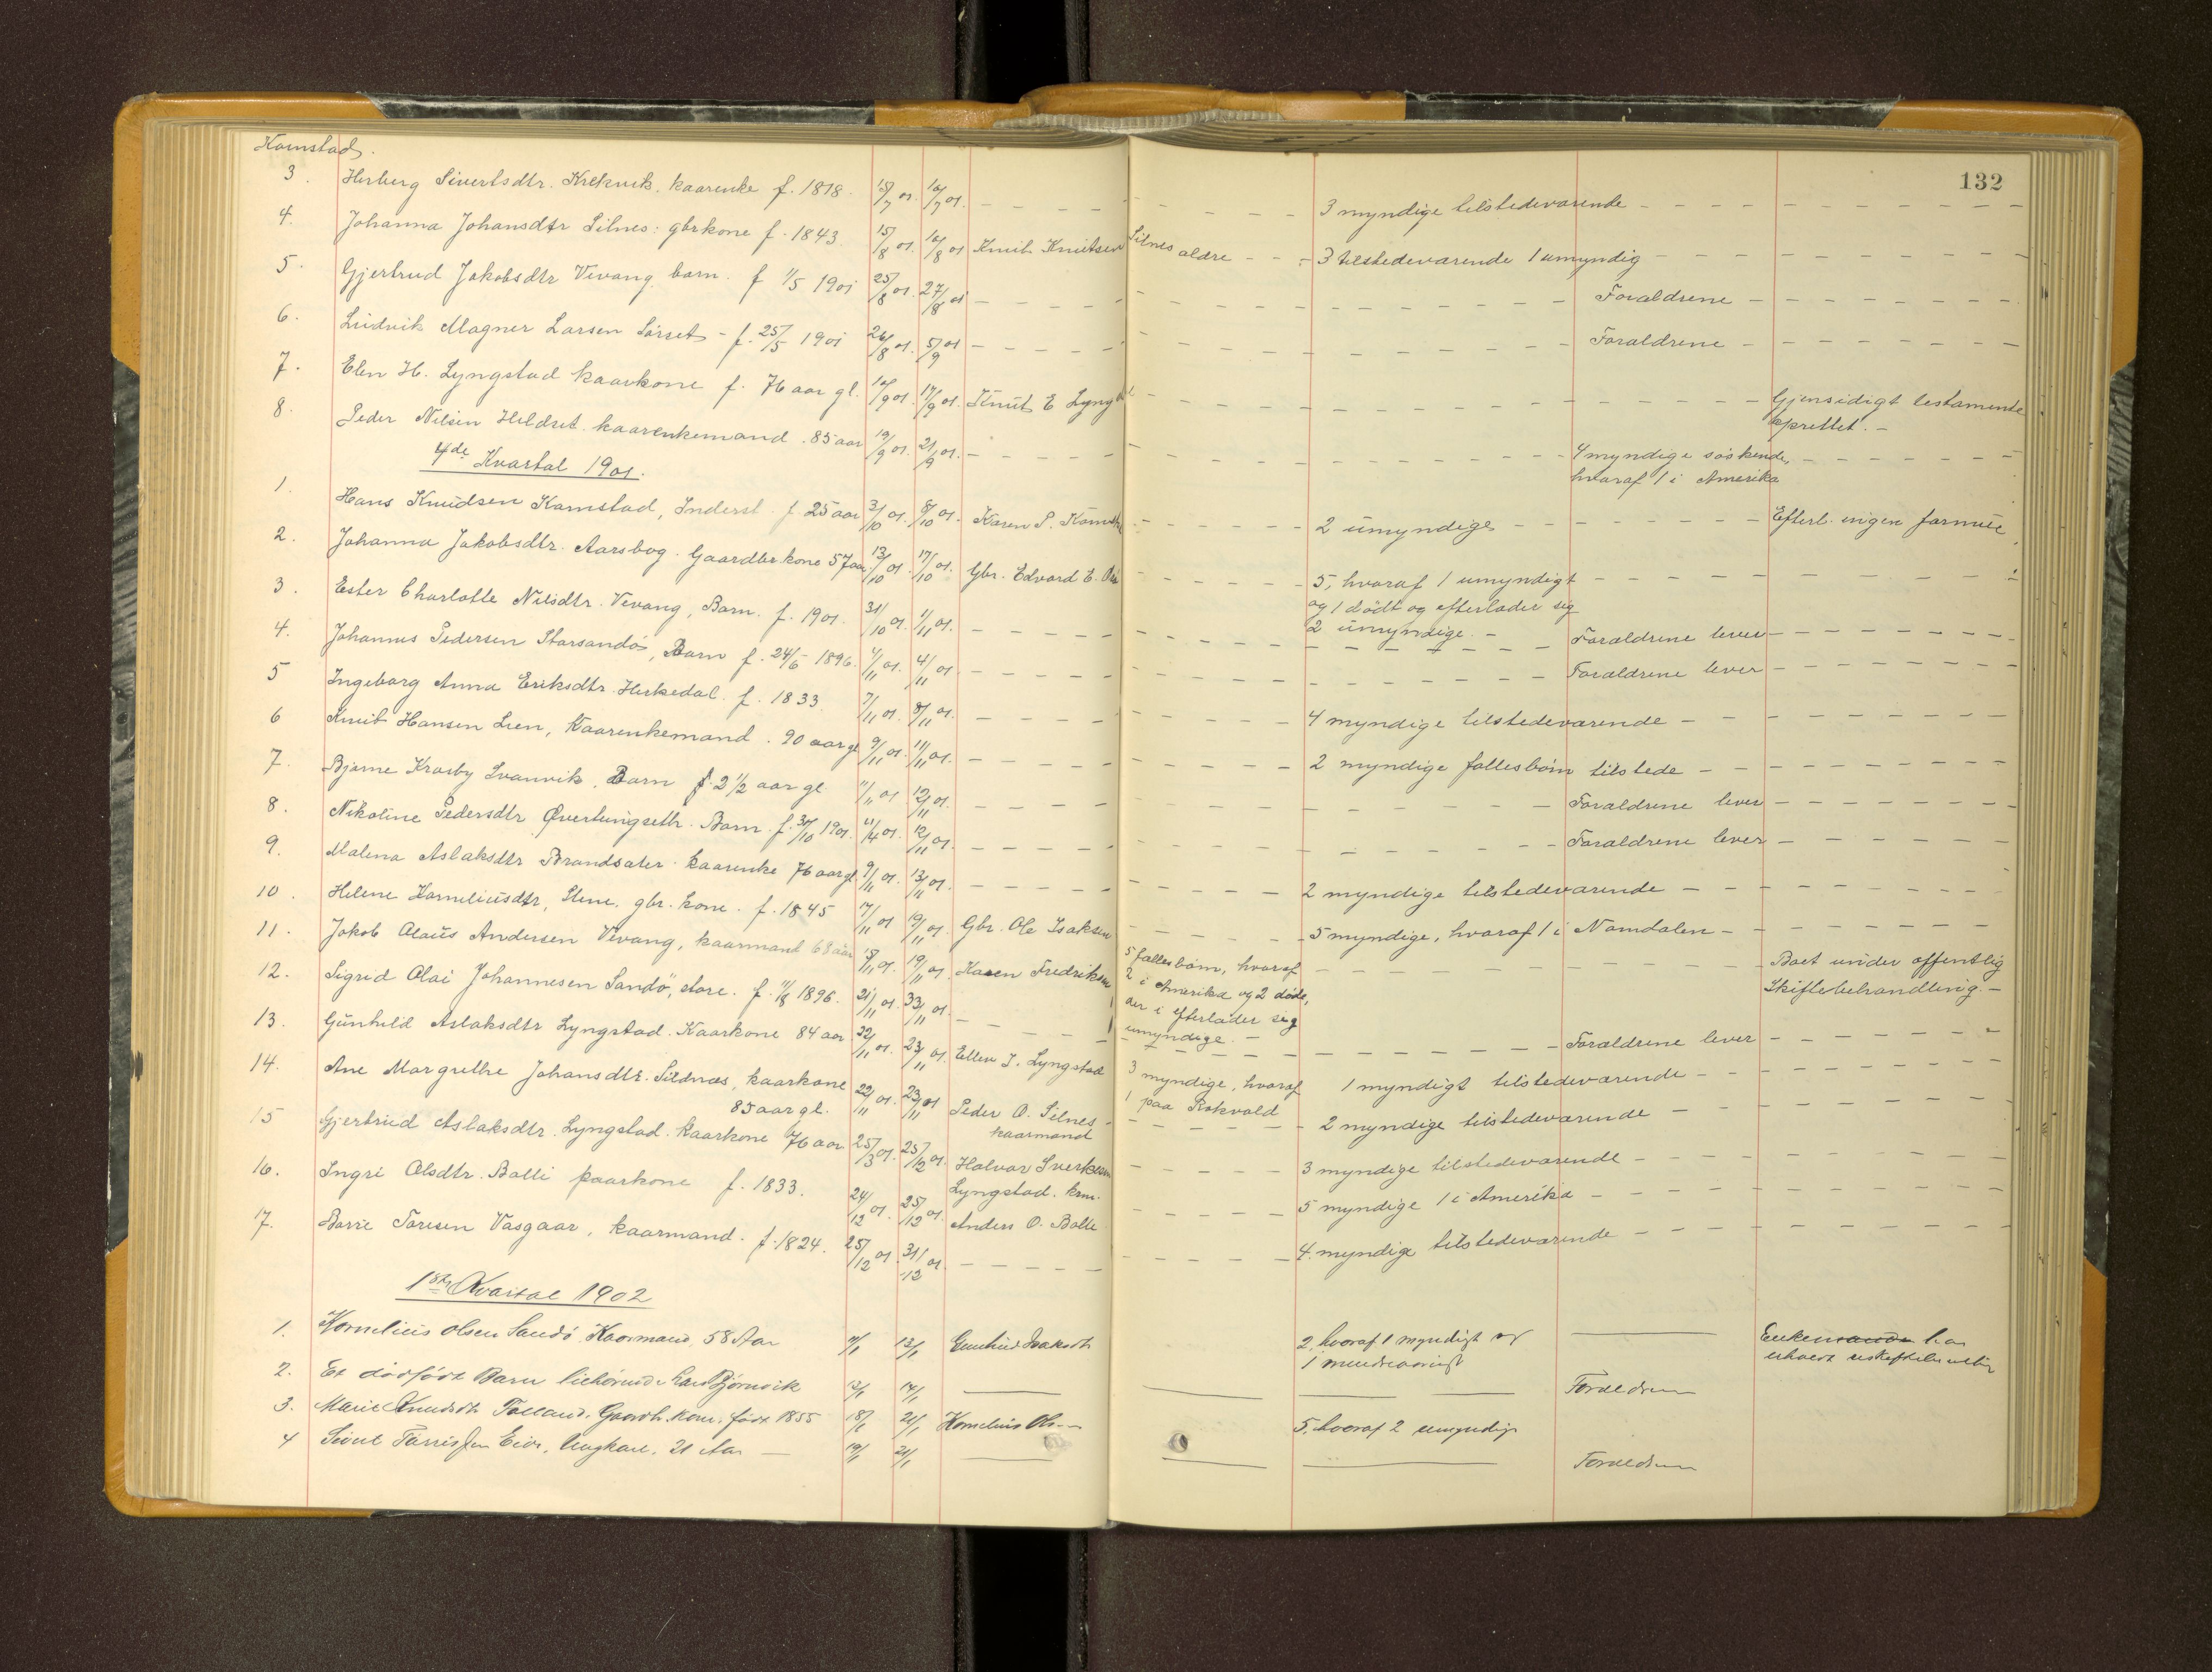 Karnstad.
132
3. Herberg Sivertsdtr. Krekvik. kaarenke f. 1818. 15/7 01. 16/7 01. 3 myndige tilstedeværende
4. Johanna Johansdtr Silnes: gbrkone f. 1843. 15/8 01. 16/8 01 Knut Knutsen Silnes ældre 3 tilstedeværende 1 umyndig
5. Gjertrud Jakobsdtr Vevang barn. f 1/5 1901 25/8 01. 27/8 01 Forældrene
6. Ludvik Magner Larsen Sørset - f. 25/5 1901 26/8 01. 5/9 01 Forældrene
7. Elen H. Lyngstad kaarkone f. 76 aar gl. 16/9 01. 17/9 01. Knut E Lyngst Gjensidigt testamente
oprettet. -
8. Peder Nilsen Hildset. kaarenkemand. 85 aar 19/9 01. 21/9 01. 4 myndige søskende,
hvoraf 1 i Amerika
4de Kvartal 1901.
1. Hans Knudsen Karnstad, Inderst f. 25 aar 3/10 01. 8/10 01. Karen P. Karnstad 2 umyndige Efterl. ingen formue
2. Johanna Jakobsdtr. Aarsbog. Gaardbrkone 57 aar 13/10 01. 17/10 01. Gbr. Edvard E. 5, hvoraf 1 umyndigt
og 1 dödt og efterlader sig
2 umyndige. -
3. Ester Charlotte Nilsdtr. Vevang, Barn. f. 1901. 31/10 01. 1/11 01. Forældrene lever
4. Johannes Pedersen Storsandö, Barn f. 24/5 1896. 4/11 01. 4/11 01 Forældrene lever
5 Ingeborg Anna Eriksdtr. Hirkedal. f. 1833. 7/11 01. 8/11 01. 4 myndige tilstedeværende
6 Knut Hansen Lien, Kaarenkemand. 90 aar gl 9/11 01. 11/11 01. 2 myndige fællesbörn tilstede
7. Bjarne Kraaby Svanvik, Barn f. 2 1/2 aar gl 11/11 01 12/11 01. Forældrene lever
8. Nikoline Pedersdtr Övertungseth. Barn. f. 30/10 1901. 12/11 01. Forældrene lever
9. Malena Aslaksdtr Brandsæter. kaarenke 76 aar gl 9/11 01. 13/11 01. 2 myndige tilstedeværende
10. Helene Korneliusdtr, Stene. gbr. kone. f. 1845 17/11 01 19/11 01. Gbr. Ole Isaksen 5 myndige, hvoraf 1 i Namdalen
11. Jakob Olaus Andersen Vevang, kaarmand 68 aar 18/11 01. 19/11 01. Karen Fredriksen 5 fællesbörn, hvoraf
2 i Amerika og 2 döde,
der i efterlader sig
umyndige. - Boet under offentlig
Skiftebehandling. -
12. Sigrid Olai Johannesen Sandö, store. f. 11/8 1896. 21/11 01. 23/11 01. Forældrene lever
13. Gunhild Aslaksdtr Lyngstad. Kaarkone 84 aar 22/11 01. 23/11 01. Ellev I. Lyngstad 3 myndige, hvoraf
1 paa Rokvald 1 myndigt tilstedeværende
14. Ane Margrethe Johansdtr. Sildnæs, kaarkone
85 aar gl. 22/11 01. 23/11 01 Peder O. Silnes
kaarmand 2 myndige tilstedeværende
15 Gjertrud Aslaksdtr. Lyngstad. kaarkone 76 aar 25/3 01. 25/12 01. Halvor Sverkesen
Lyngstad. krm. 3 myndige tilstedeværende
16. Ingri Olsdtr. Bolli kaarkone f. 1833. 24/12 01. 25/12 01. Anders O. Bolle 5 myndige 1 i Amerika
17. Børre Toresen Vasgaar, kaarmand. f. 1824. 25/12 01 31/12 01 4 myndige tilstedeværende
1ste Kvartal 1902
1. Kornelius Olsen Sandö. Kaarmand, 58 Aar 12/1 Gunhild Isaksdtr 2, hvoraf 1 myndigt og
1 mindreaarigt Enken har
erholdt uskiftebevilling
2. Et dödfödt Barn Bjørnvik 14/1 Forældrene
3. Marit Knudsdtr Tolland. Gaardbr. kone. født 1855 18/1 21/1 Kornelius Ols. 5, hvoraf 2 umyndige
4 Sivert Eide, Ungkarl. 21 Aar 19/1 21/1 Forældrene